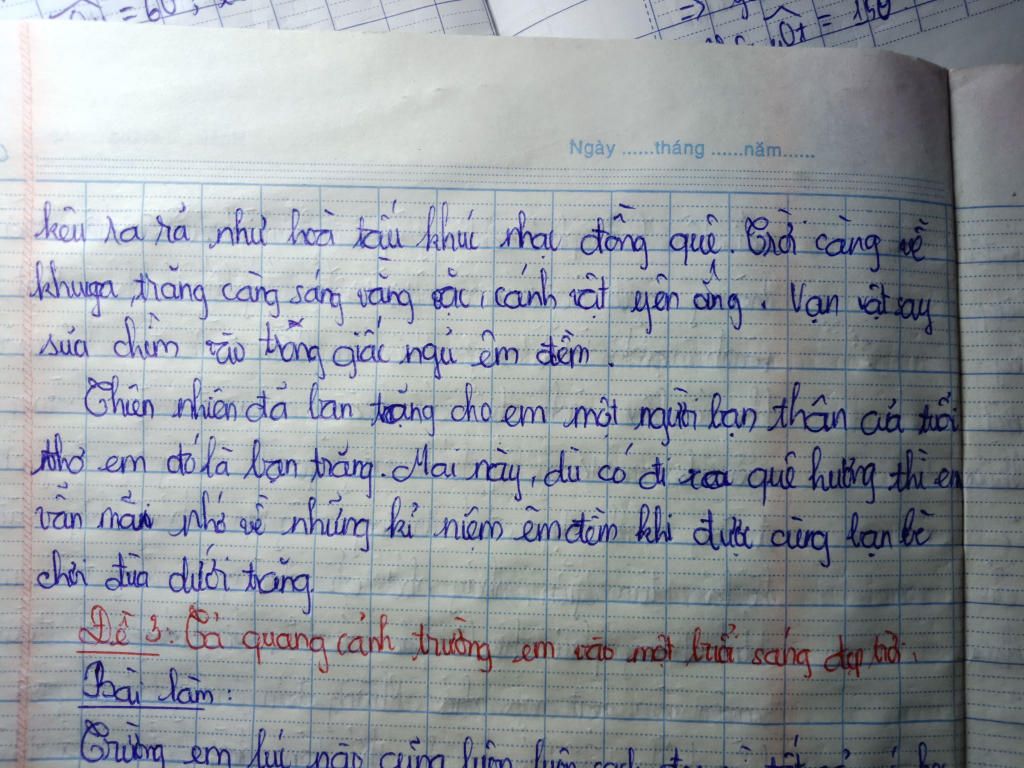 = 60
= 150
Ngày ......tháng ......năm......
kêu ra rả như hoà tấu khúc nhạc đồng quê. Trời càng về
khuya, trăng càng sáng vằng vặc, cảnh vật yên ắng. Vạn vật say
sưa chìm vào trong giấc ngủ êm đềm.
Thiên nhiên đã ban tặng cho em một người bạn thân của tuổi
thơ em đó là bạn trăng. Mai này, dù có đi xa quê hương thì em
vẫn mãi nhớ về những kỉ niệm êm đềm khi được cùng bạn bè
chơi đùa dưới trăng.
Đề 3: Tả quang cảnh trường em vào một buổi sáng đẹp trời.
Bài làm:
Trường em lúc nào cũng luôn luôn sạch